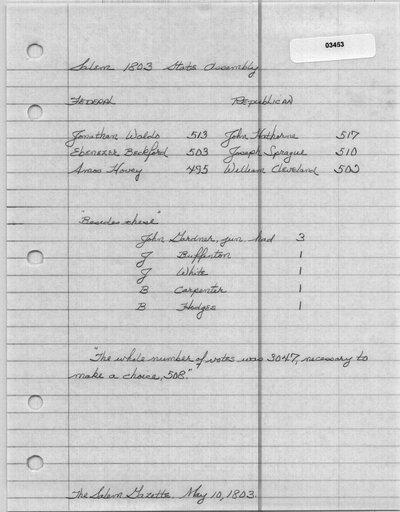 03453
Salem 1803 State Assembly
FEDERAL REPUBLICAN
Jonathan Waldo 513 John Hathorne 517
Ebenezer Beckford 503 Joseph Sprague 510
Amos Hovey 495 William Cleveland 502
"Besides these"
John Gardner, jun. had 3
J Buffenton 1
J White 1
B Carpenter 1
B Hodges 1
"The whole number of votes was 3047, necessary to
make a choice, 508."
The Salem Gazette. May 10, 1803.